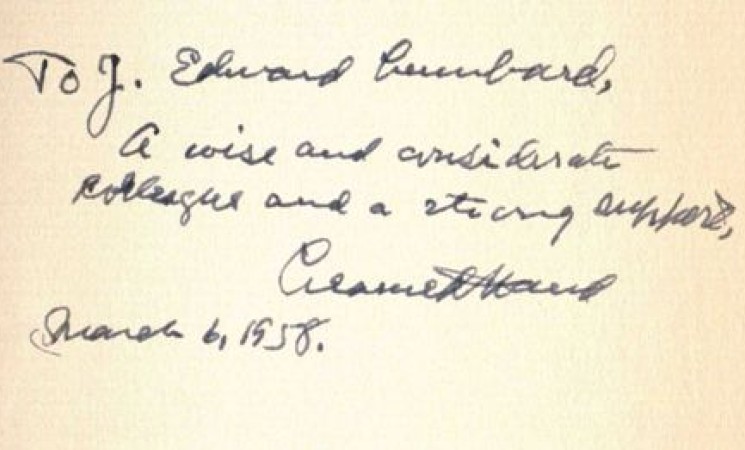 To J. Edward Lumbard,
A wise and considerate
colleague and a strong support,
Learned Hand
March 6, 1958.